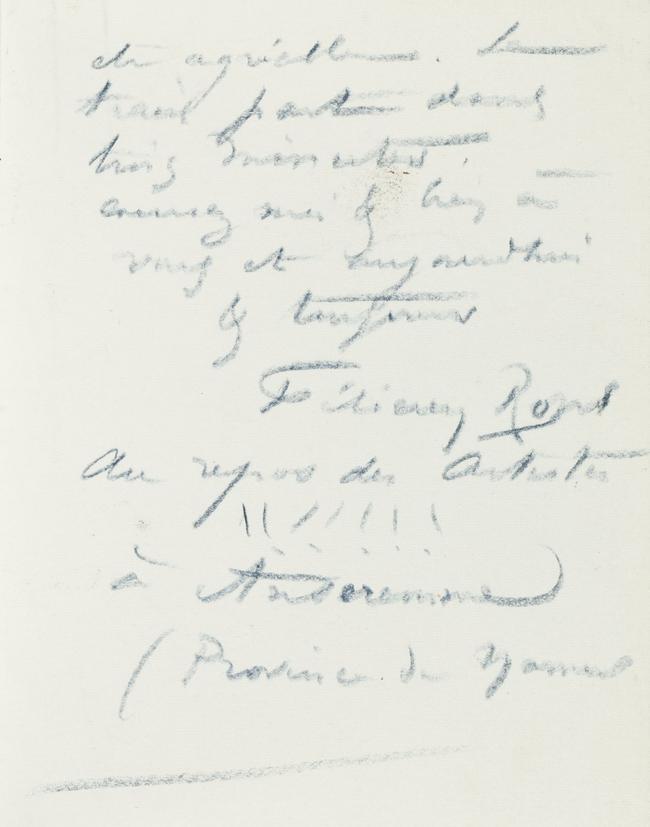 et agréables. Le
train part dans
cinq minutes.
à
vous et aujourdhui
& toujours
Félicien Rops
Au repos des Artistes
!!!!!!!
à Anseremme
(Province de Namur